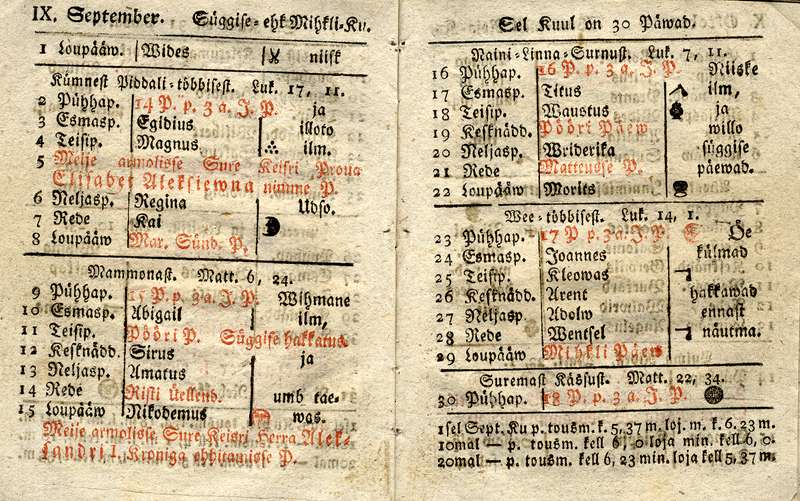 IX. September. Süggise-ehk Mihkli-Ku.
1 Loupääw. Wides niisk
Kümnest Piddali-többisest. Luk. 17, 11.
2 Pühhap. 14 P. p. 3 a. J. P. ja
3 Esmasp. Egidius illoto
4 Teisip. Magnus. ilm.
5 Meije armolisse Sure Keisri Proua
Elisabet Aleksiewna nimme P.
6 Neljasp. Regina Udso.
7 Rede Kai
8 Loupääw Mar. Sünd. P.
Mammonast. Matt. 6, 24.
9 Pühhap. 15 P. p. 3 a. J. P. Wihmane
10 Esmasp. Abigail ilm,
11 Teisip. Pööri P. Süggise hakkatus.
12 Kesknädd. Sirus ja
13 Neljasp. Amatus
14 Rede Risti üellend. umb tae-
15 Loupääw Nikodemus was.
Meije armolisse Sure Keisri Herra Alek-
sandri I. Kroniga ehhitamisse P.
Sel Kuul on 30 Päwad.
Naini-Linna-Surnust. Luk. 7, 11.
16 Pühhap. 16 P. p. 3 a. J. P. Niiske
17 Esmasp. Titus ilm,
18 Teisip. Waustus ja
19 Kesknädd. Pööri Päew willo
20 Neljasp. Wriderika süggise
21 Rede Matteusse P. päewad.
22 Loupääw Morits
Wee-többisest. Luk. 14, 1.
23 Pühhap. 17 P p. 3 a J. P Öe
24 Esmasp. Joannes külmad
25 Teisip. Kleowas
26 Kesknädd. Arent hakkawad
27 Neljasp. Adolw ennast
28 Rede Wentsel näutma.
29 Loupääw Mihkli Päew
Suremast Käsfust. Matt. 22, 34.
30 Pühhap. 18 P. p. 3 a. J. P.
1sel Sept. Ku p. tousm. k. 5, 37 m, loj. m. k. 6. 23 m.
10mal — p. tousm. kell 6, 0 loja min. kell 6, 0.
20mal — p. tousm. kell 6, 23 min. loja kell 5, 37 m.